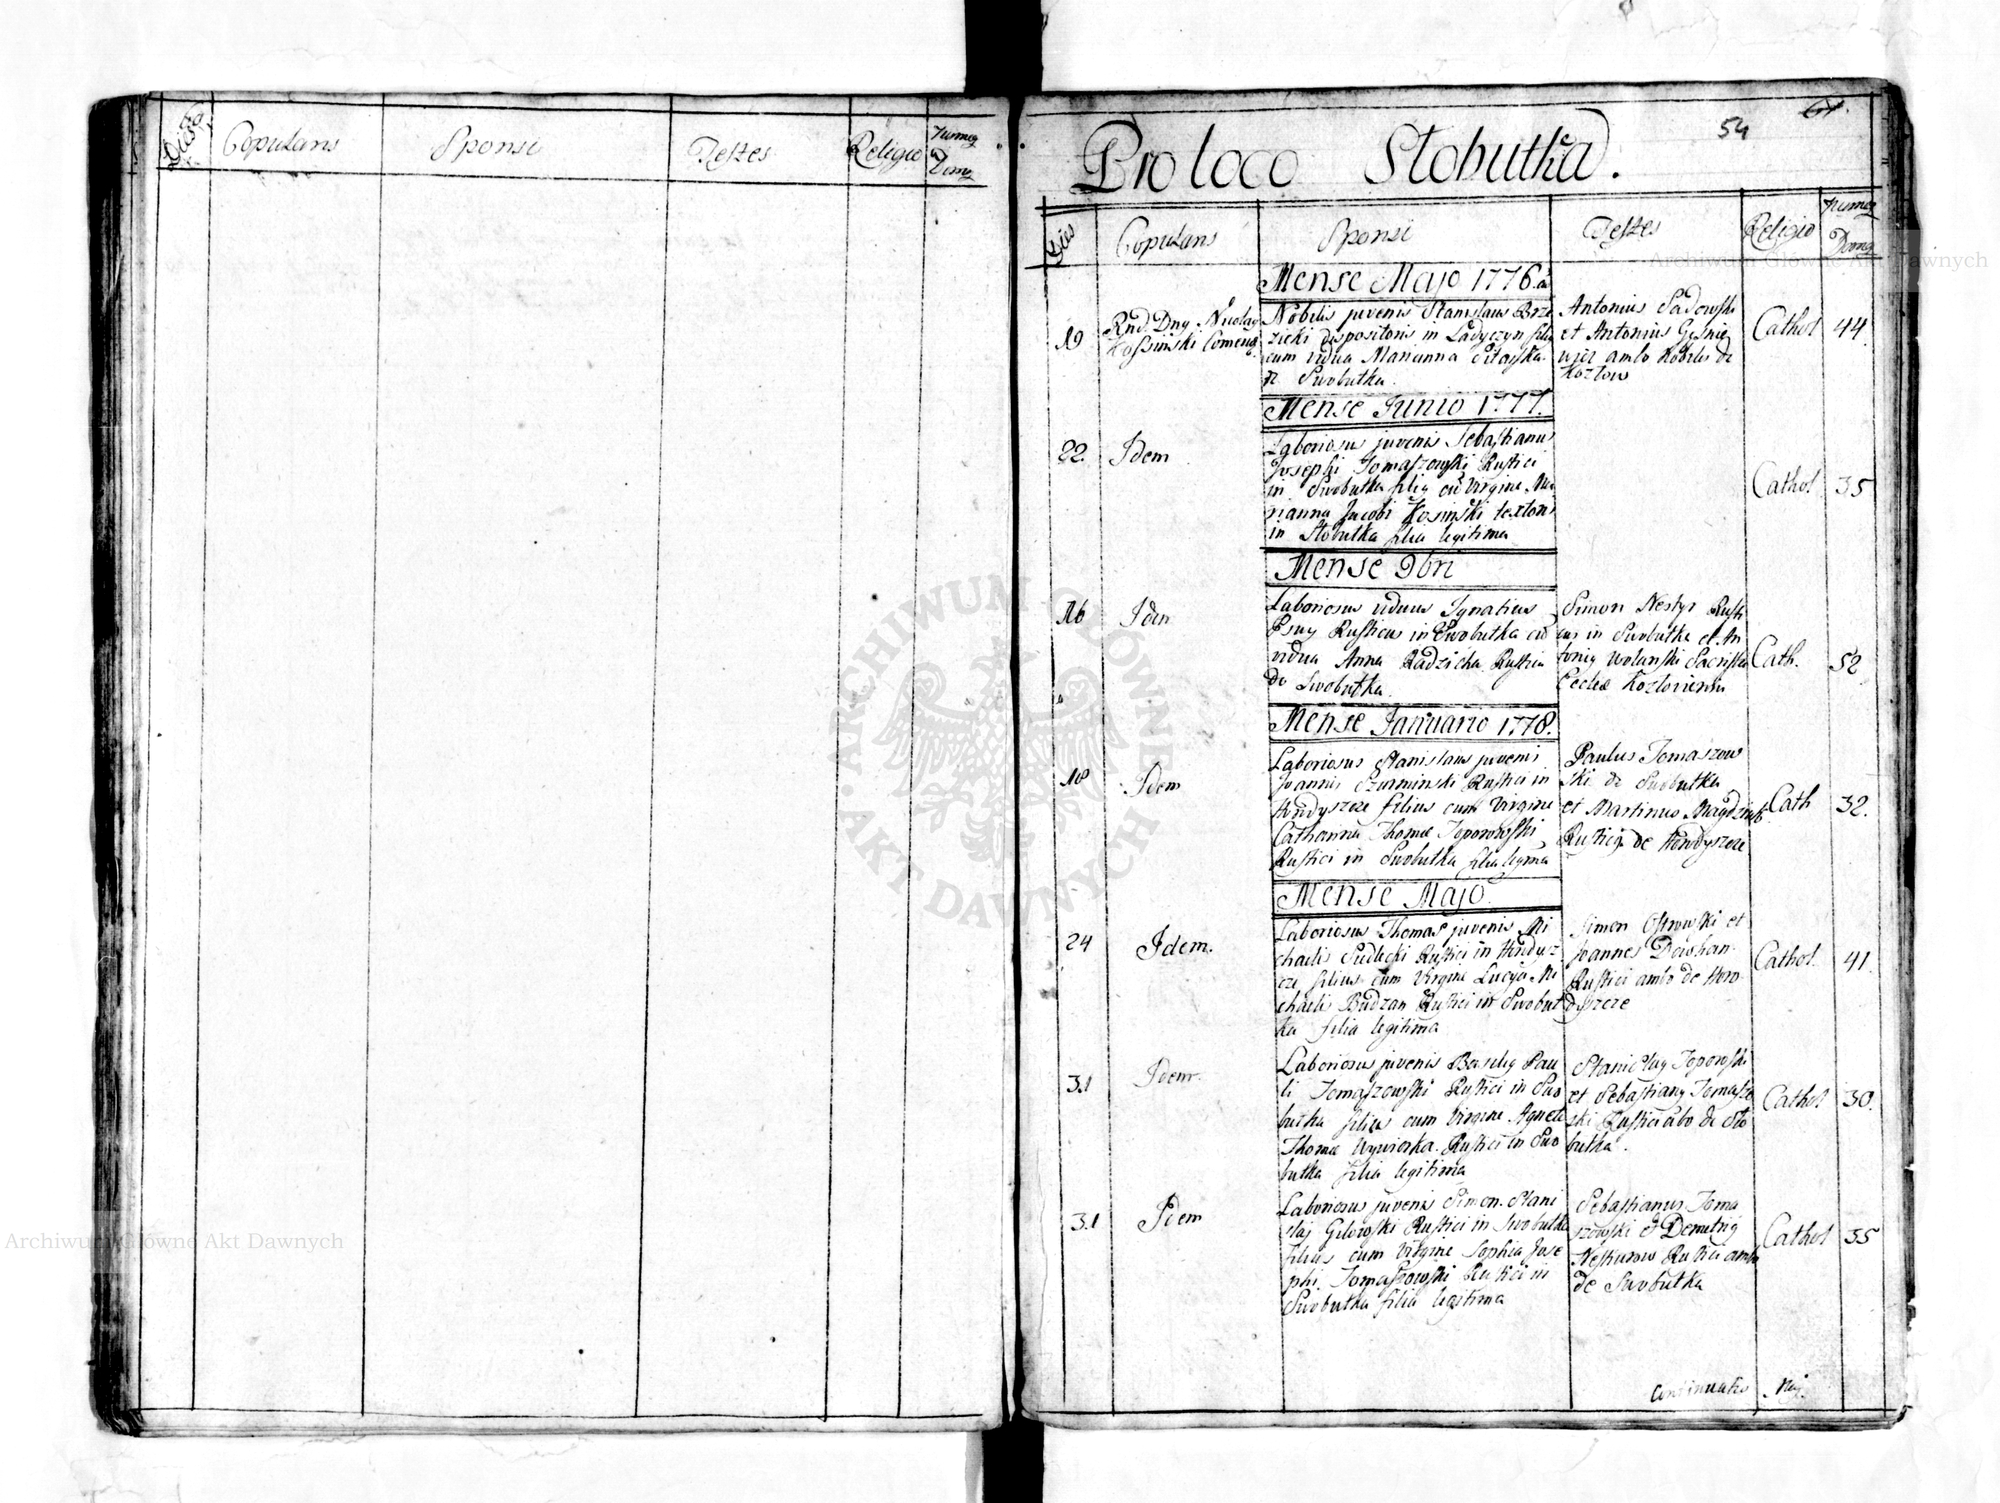 Dies
Copulans
Sponsi
Testes
Religio
Numeg
Domg
54
Pro loco Slobutka.
Dies
Copulans
Sponsi
Testes
Religio
Numeg
Domg
Mense Majo 1776.
19
Rnd. Dng Nicolag
Kossinski Comeng
Nobilis juvenis Stanislaus Brze
zicki dispositoris in Ladyczyn filig
cum vidua Marianna
de Swobutka.
Antonius Sadowski
et Antonius
ambo Nobiles de
Kozlow
Cathol
44
Mense Junio 1777.
22
Idem
Laboriosus juvenis Sebastianus
Josephi Tomaszowski Rustici
in Swobutka filig cū Virgine Ma
rianna Jacobi Kosinski textoris
in Slobutka filia legitima
Cathol
35
Mense 9bri
16
Idem
Laboriosus viduus Ignatius
Psuy Rusticus in Swobutka cū
vidua Anna Radzicha Rustica
de Swobutka.
Simon Nestyr Rusti
cus in Swobutka et An
tonig Wolanski Sacrista
Eccleæ Kozloviensis
Cath.
52
Mense Januario 1778.
18
Idem
Laboriosus Stanislaus juvenis
Joannis Szurminski Rustici in
Horodyszcze filius cum Virgine
Catharina Thomæ Toporowski
Rustici in Swobutka filia legitima
Paulus Tomaszow
ski de Swobutka
et Martinus
Rustici de Horodyszcze
Cath
32.
Mense Majo
24
Idem.
Laboriosus Thomas juvenis Mi
chaelis Sudlecki Rustici in Horodysz
cze filius cum Virgine Lucya Mi
chaelis Budzan Rustici in Swobut
ka filia legitima
Simon Ostrowski et
Joannes Dowhan
Rustici ambo de Horo
dyszcze
Cathol.
41.
31
Idem.
Laboriosus juvenis Basilig Pau
li Tomaszowski Rustici in Swo
butka filius cum Virgine Agnete
Thomæ Wywiorka Rustici in Swo
butka filia legitima
Stanislag Toporowski
et Sebastiang Tomaszo
ski Rustici ābo de Slo
butka.
Cathol
30.
31
Idem
Laboriosus juvenis Simon Stani
slaj Gilowski Rustici in Swobutka
filius cum Virgine Sophia Jose
phi Tomaszowski Rustici in
Swobutka filia legitima
Sebastianus Toma
szowski et Demetrig
Nesturow Rustici ambo
de Swobutka
Cathol
35
Continuatio Maj.
Archiwum Główne Akt Dawnych
Archiwum Główne Akt Dawnych
ARCHIWUM GŁÓWNE
AKT DAWNYCH